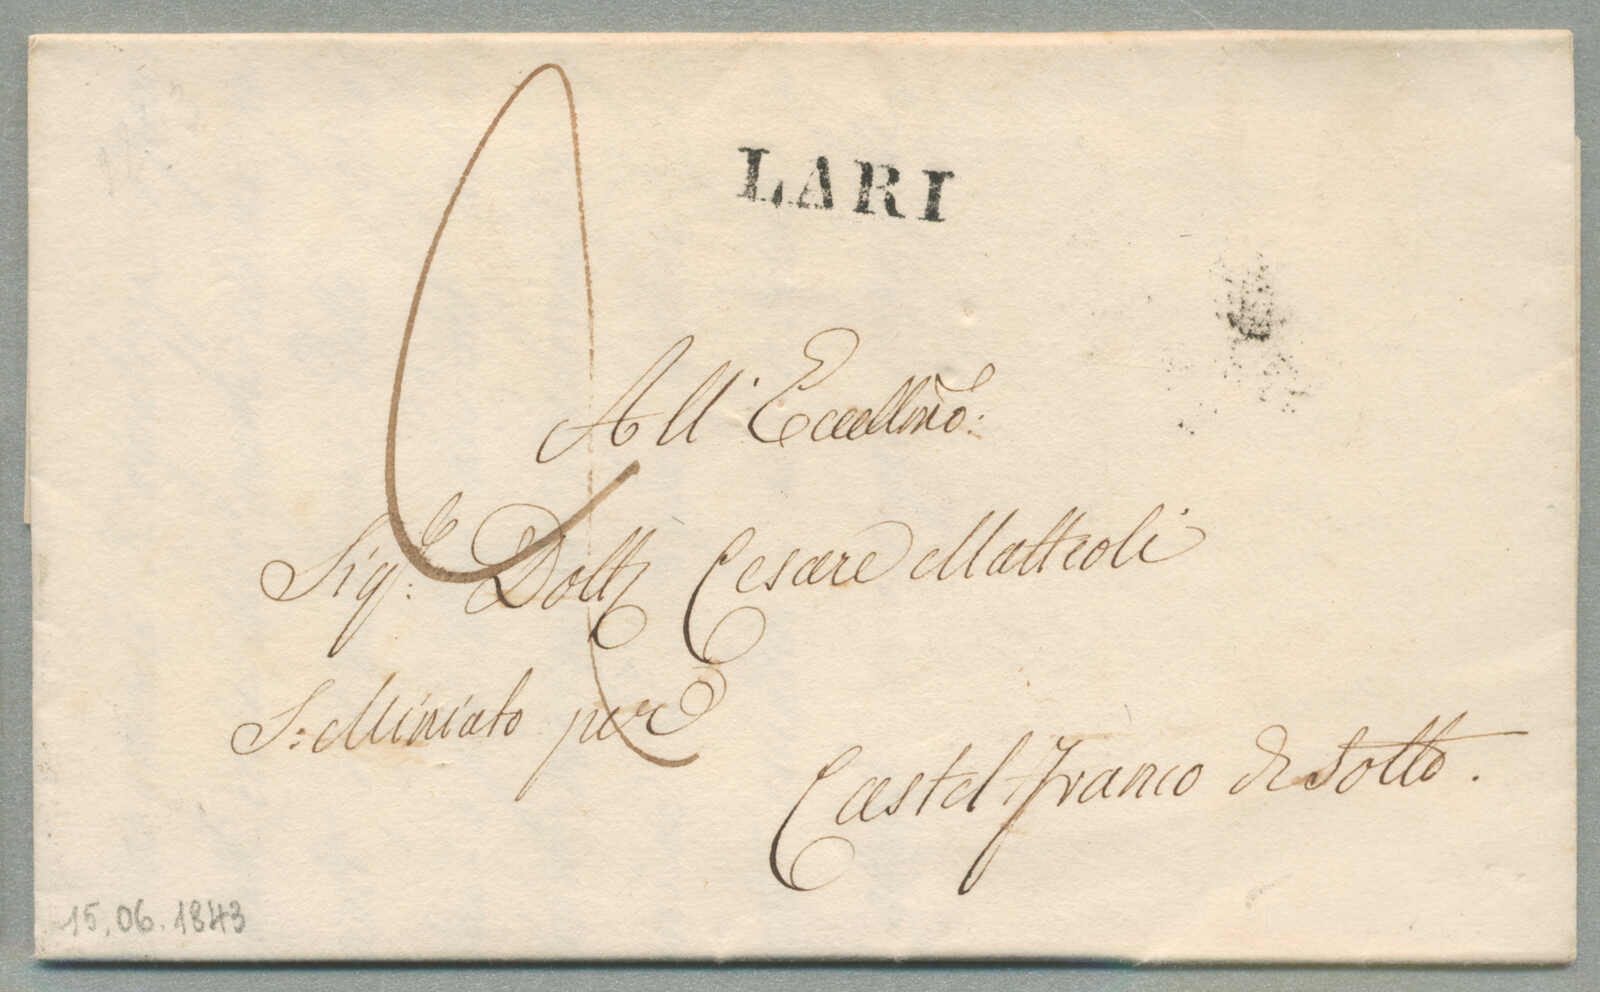 LARI
All' Eccellmo:
Sigre: Dott Cesare Matteoli
S: Miniato per
Castel Franco di Sotto.
15.06.1843